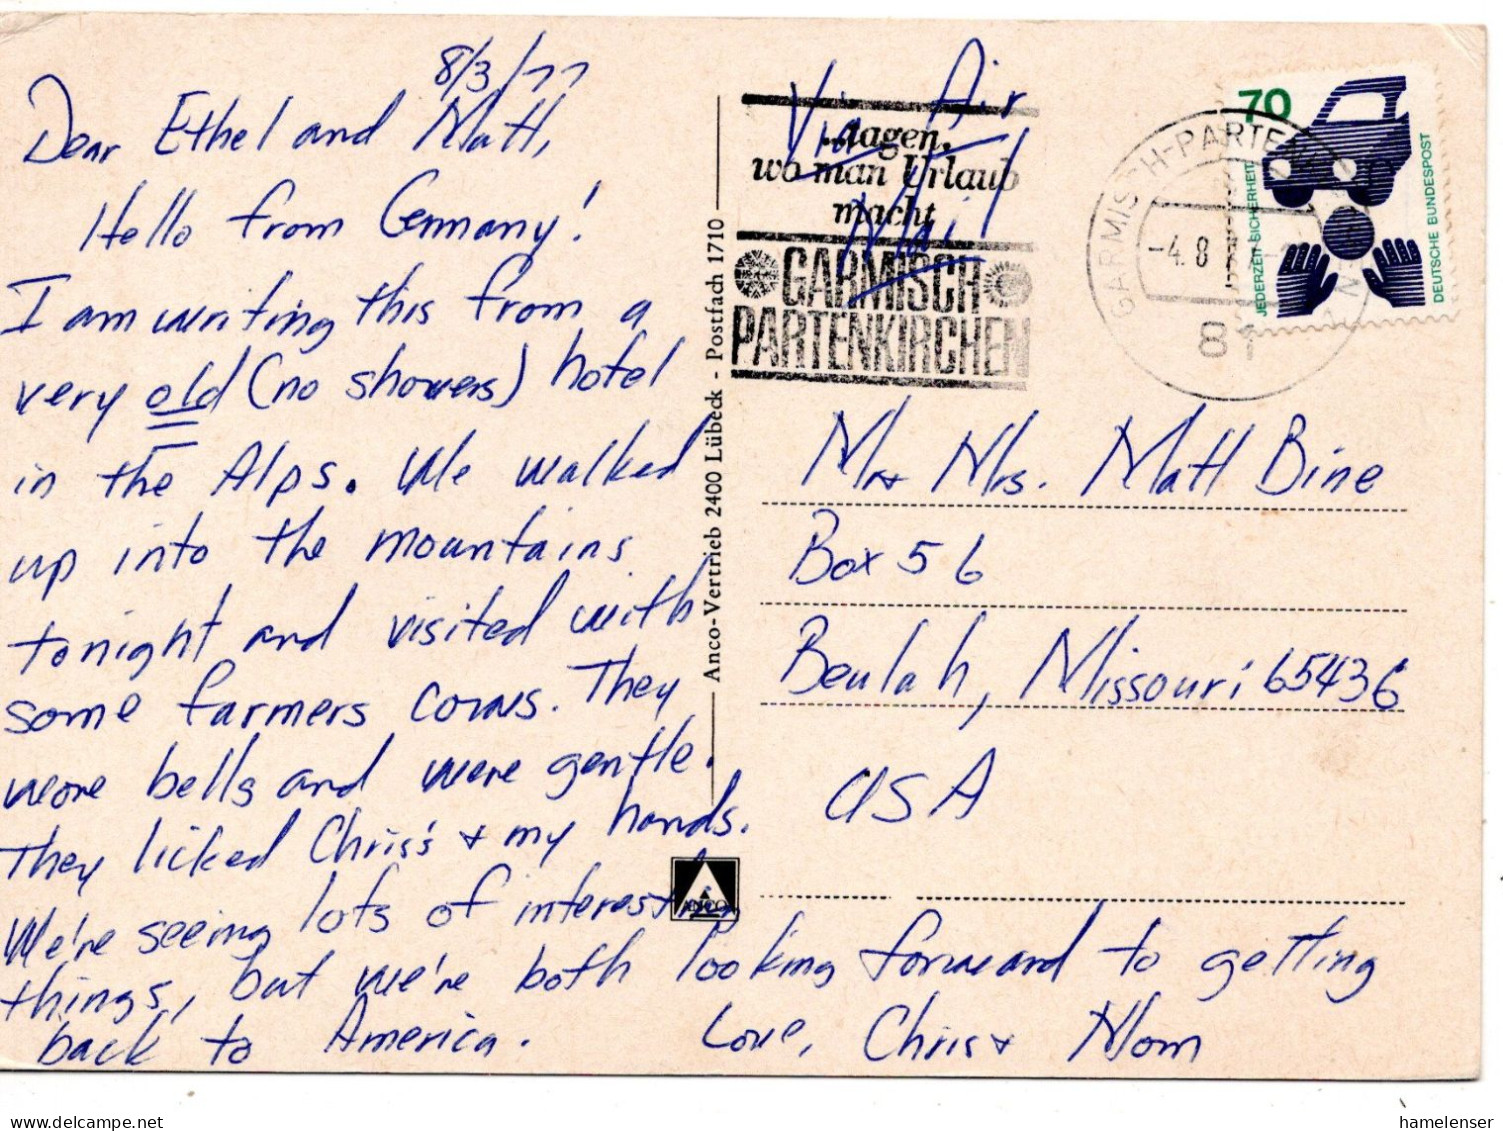 8/3/77
Dear Ethel and Matt,
Hello from Germany!
I am writing this from a
very old (no showers) hotel
in the Alps. We walked
up into the mountains
tonight and visited with
some farmers cows. They
wore bells and were gentle.
They licked Chris's + my hands.
We're seeing lots of interesting
things, but we're both looking forward to getting
back to America. Love, Chris + Mom
Anco-Vertrieb 2400 Lübeck - Postfach 1710
ANCO
Via Air
Mail
...tagen,
wo man Urlaub
macht
GARMISCH
PARTENKIRCHEN
GARMISCH-PARTENKIRCHEN
-4.8
81
70
JEDERZEIT SICHERHEIT
DEUTSCHE BUNDESPOST
Mr + Mrs. Matt Bine
Box 56
Beulah, Missouri 65436
USA
hamelenser
delcampe.net